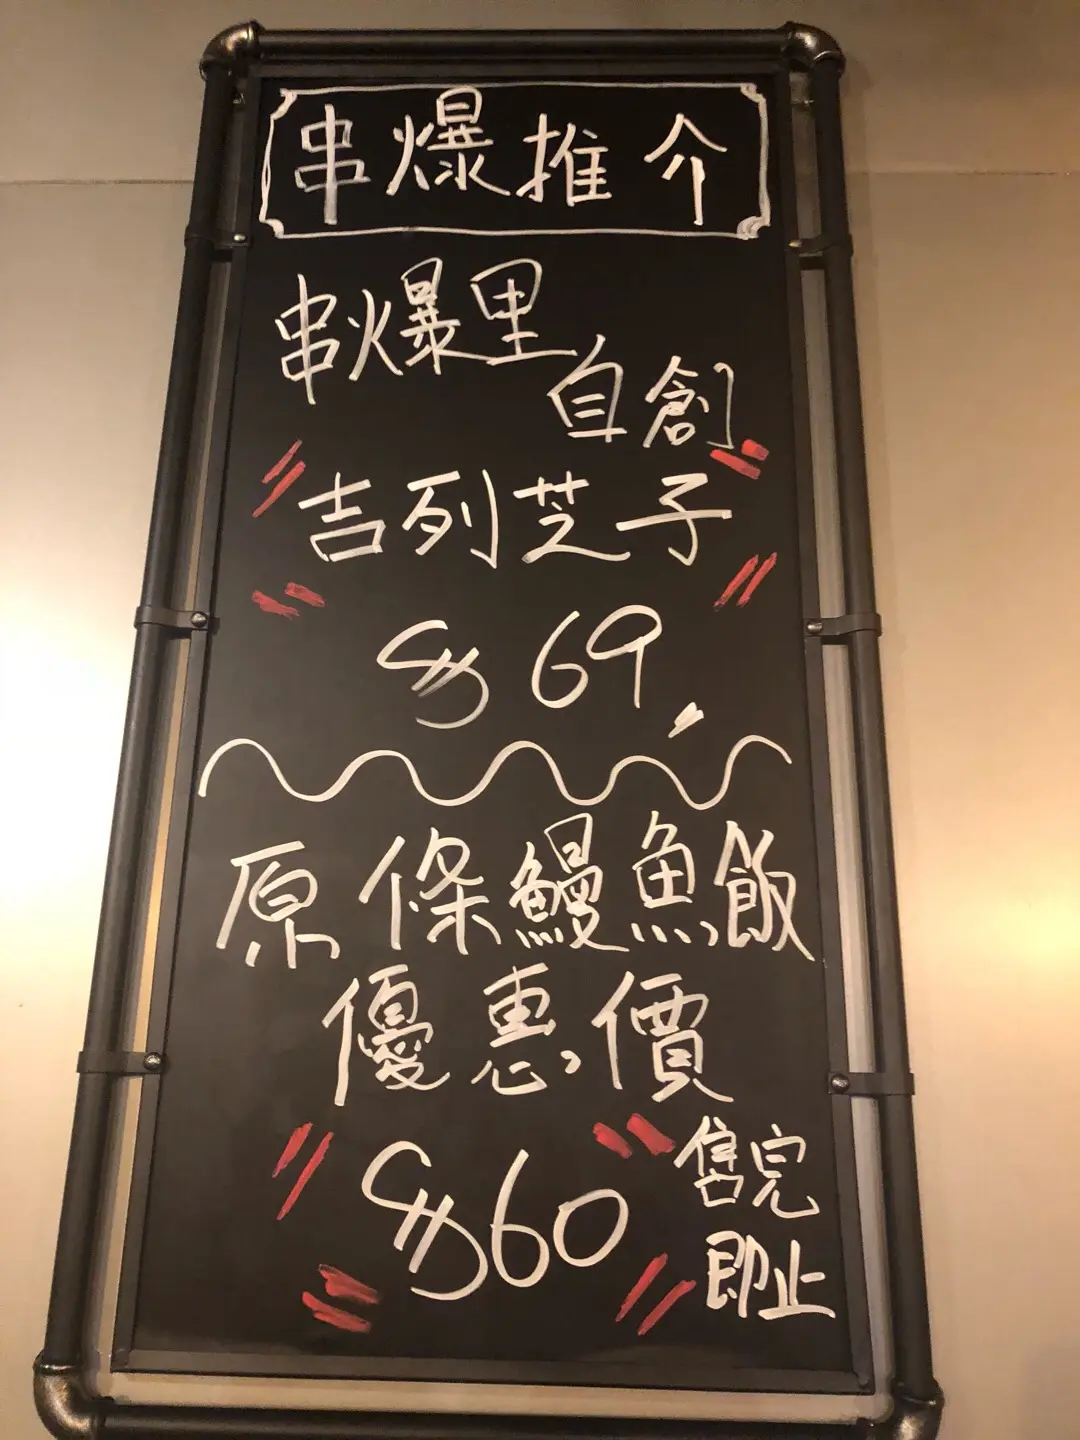 串爆推介
串爆里
自創
吉列芝子
$69
原條鰻魚飯
優惠價
$60
售完
即止